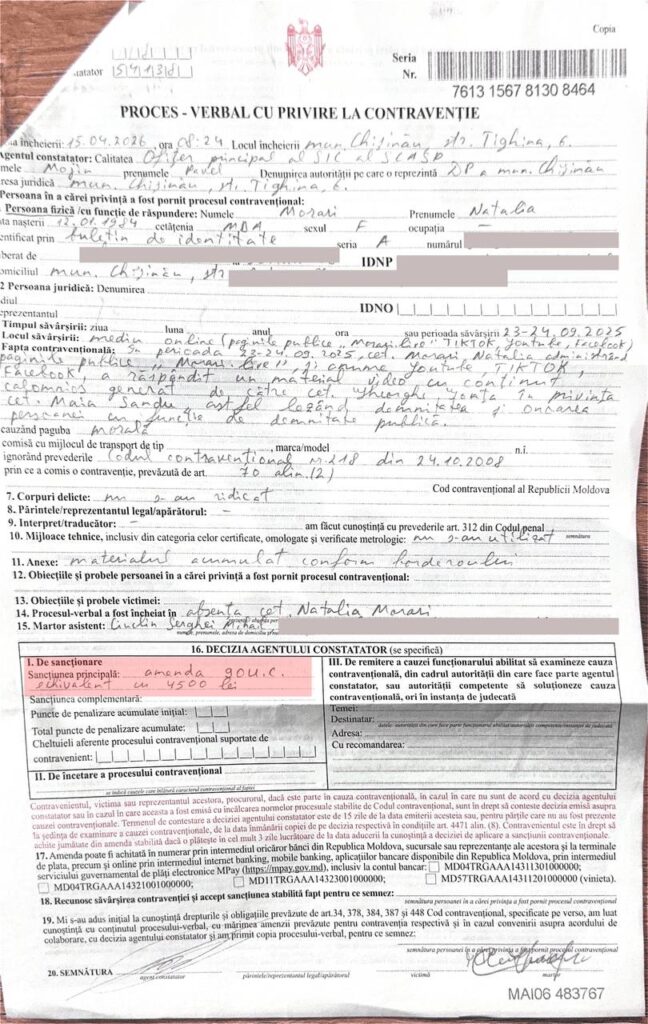 Copia
Seria
Nr.
7613 1567 8130 8464
PROCES - VERBAL CU PRIVIRE LA CONTRAVENȚIE
încheierii: 15.04.2026, ora 08:24 Locul încheierii mun. Chișinău, str. Tighina, 6.
Agentul constatator: Calitatea Ofițer principal al SIC al SCASP
mele Mojin prenumele Pavel Denumirea autorității pe care o reprezintă DP a mun. Chișinău
resa juridică mun. Chișinău, str. Tighina, 6.
Persoana în a cărei privință a fost pornit procesul contravențional:
Persoana fizică /cu funcție de răspundere: Numele Morari Prenumele Natalia
ta nașterii 12.01.1984 cetățenia MDA sexul F ocupația –
entificat prin buletin de identitate seria A numărul
berat de IDNP
omiciliul mun. Chișinău, str
2 Persoana juridică: Denumirea
diul
eprezentantul IDNO
Timpul săvârșirii: ziua luna anul ora sau perioada săvârșirii 23-24.09.2025
Locul săvârșirii: mediu online (paginile publice „Morari.live" TIKTOK, Youtube, Facebook)
Fapta contravențională: În perioada 23-24.09.2025, cet. Morari Natalia administrând
paginile publice „Morari.live", și anume Youtube, TIKTOK,
Facebook, a răspândit un material video cu conținut
calomnios generat de către cet. Gheorghe în privința
cet. Maia Sandu, astfel lezând demnitatea și onoarea
persoanei cu funcție de demnitate publică.
cauzând paguba morală
comisă cu mijlocul de transport de tip , marca/model n.i.
ignorând prevederile Codul contravențional nr. 218 din 24.10.2008
prin ce a comis o contravenție, prevăzută de art. 70 alin. (2)
Cod contravențional al Republicii Moldova
7. Corpuri delicte: nu s-au ridicat
8. Părintele/reprezentantul legal/apărătorul: –
9. Interpret/traducător: – am făcut cunoștință cu prevederile art. 312 din Codul penal
semnătura
10. Mijloace tehnice, inclusiv din categoria celor certificate, omologate și verificate metrologic: nu s-au utilizat
11. Anexe: materialul acumulat conform borderoului
12. Obiecțiile și probele persoanei în a cărei privință a fost pornit procesul contravențional:
13. Obiecțiile și probele victimei:
14. Procesul-verbal a fost încheiat în absența cet. Natalia Morari
15. Martor asistent: Serghei Mihail,
16. DECIZIA AGENTULUI CONSTATATOR (se specifică)
I. De sancționare
Sancțiunea principală: amenda 90 U.C.
echivalent cu 4500 lei
Sancțiunea complementară:
Puncte de penalizare acumulate inițial:
Total puncte de penalizare acumulate:
Cheltuieli aferente procesului contravențional suportate de
contravenient:
II. De încetare a procesului contravențional
se indică cauzele care înlătură caracterul contravențional al faptei
III. De remitere a cauzei funcționarului abilitat să examineze cauza
contravențională, din cadrul autorității din care face parte agentul
constatator, sau autorității competente să soluționeze cauza
contravențională, ori în instanța de judecată
Temei:
Destinatar:
datele autorității din care face parte funcționarul abilitat/autorității competente/instanței de judecată
Adresa:
Cu recomandarea:
Contravenientul, victima sau reprezentantul acestora, procurorul, dacă este parte în cauza contravențională, în cazul în care nu sunt de acord cu decizia agentului
constatator sau în cazul în care aceasta a fost emisă cu încălcarea normelor procesuale stabilite de Codul contravențional, sunt în drept să conteste decizia emisă asupra
cauzei contravenționale. Termenul de contestare a deciziei agentului constatator este de 15 zile de la data emiterii acesteia sau, pentru părțile care nu au fost prezente
la ședința de examinare a cauzei contravenționale, de la data înmânării copiei de pe decizia respectivă în condițiile art. 447¹ alin. (8). Contravenientul este în drept să
achite jumătate din amenda stabilită dacă o plătește în cel mult 3 zile lucrătoare de la data aducerii la cunoștință a deciziei de aplicare a sancțiunii contravenționale.
17. Amenda poate fi achitată în numerar prin intermediul oricăror bănci din Republica Moldova, sucursale sau reprezentanțe ale acestora și la terminale
de plata, precum și online prin intermediul internet banking, mobile banking, aplicațiilor bancare disponibile din Republica Moldova, prin intermediul
serviciului guvernamental de plăți electronice MPay (https://mpay.gov.md), inclusiv la contul bancar: MD04TRGAAA14311301000000;
MD04TRGAAA14321001000000; MD11TRGAAA14323001000000; MD57TRGAAA14311201000000 (vinieta).
18. Recunosc săvârșirea contravenției și accept sancțiunea stabilită fapt pentru ce semnez:
semnătura persoanei în a cărei privință a fost pornit procesul contravențional
19. Mi s-au adus la cunoștință drepturile și obligațiile prevăzute de art.34, 378, 384, 387 și 448 Cod contravențional, specificate pe verso, am luat
cunoștință cu conținutul procesului-verbal, cu mărimea amenzii prevăzute pentru contravenția respectivă și în cazul convenirii asupra acordului de
colaborare, cu decizia agentului constatator și am primit copia procesului-verbal, pentru ce semnez:
semnătura persoanei în a cărei privință a fost pornit procesul contravențional
20. SEMNĂTURA
agent constatator
părintele/reprezentantul legal/apărătorul
victimă
martor
MAI06 483767